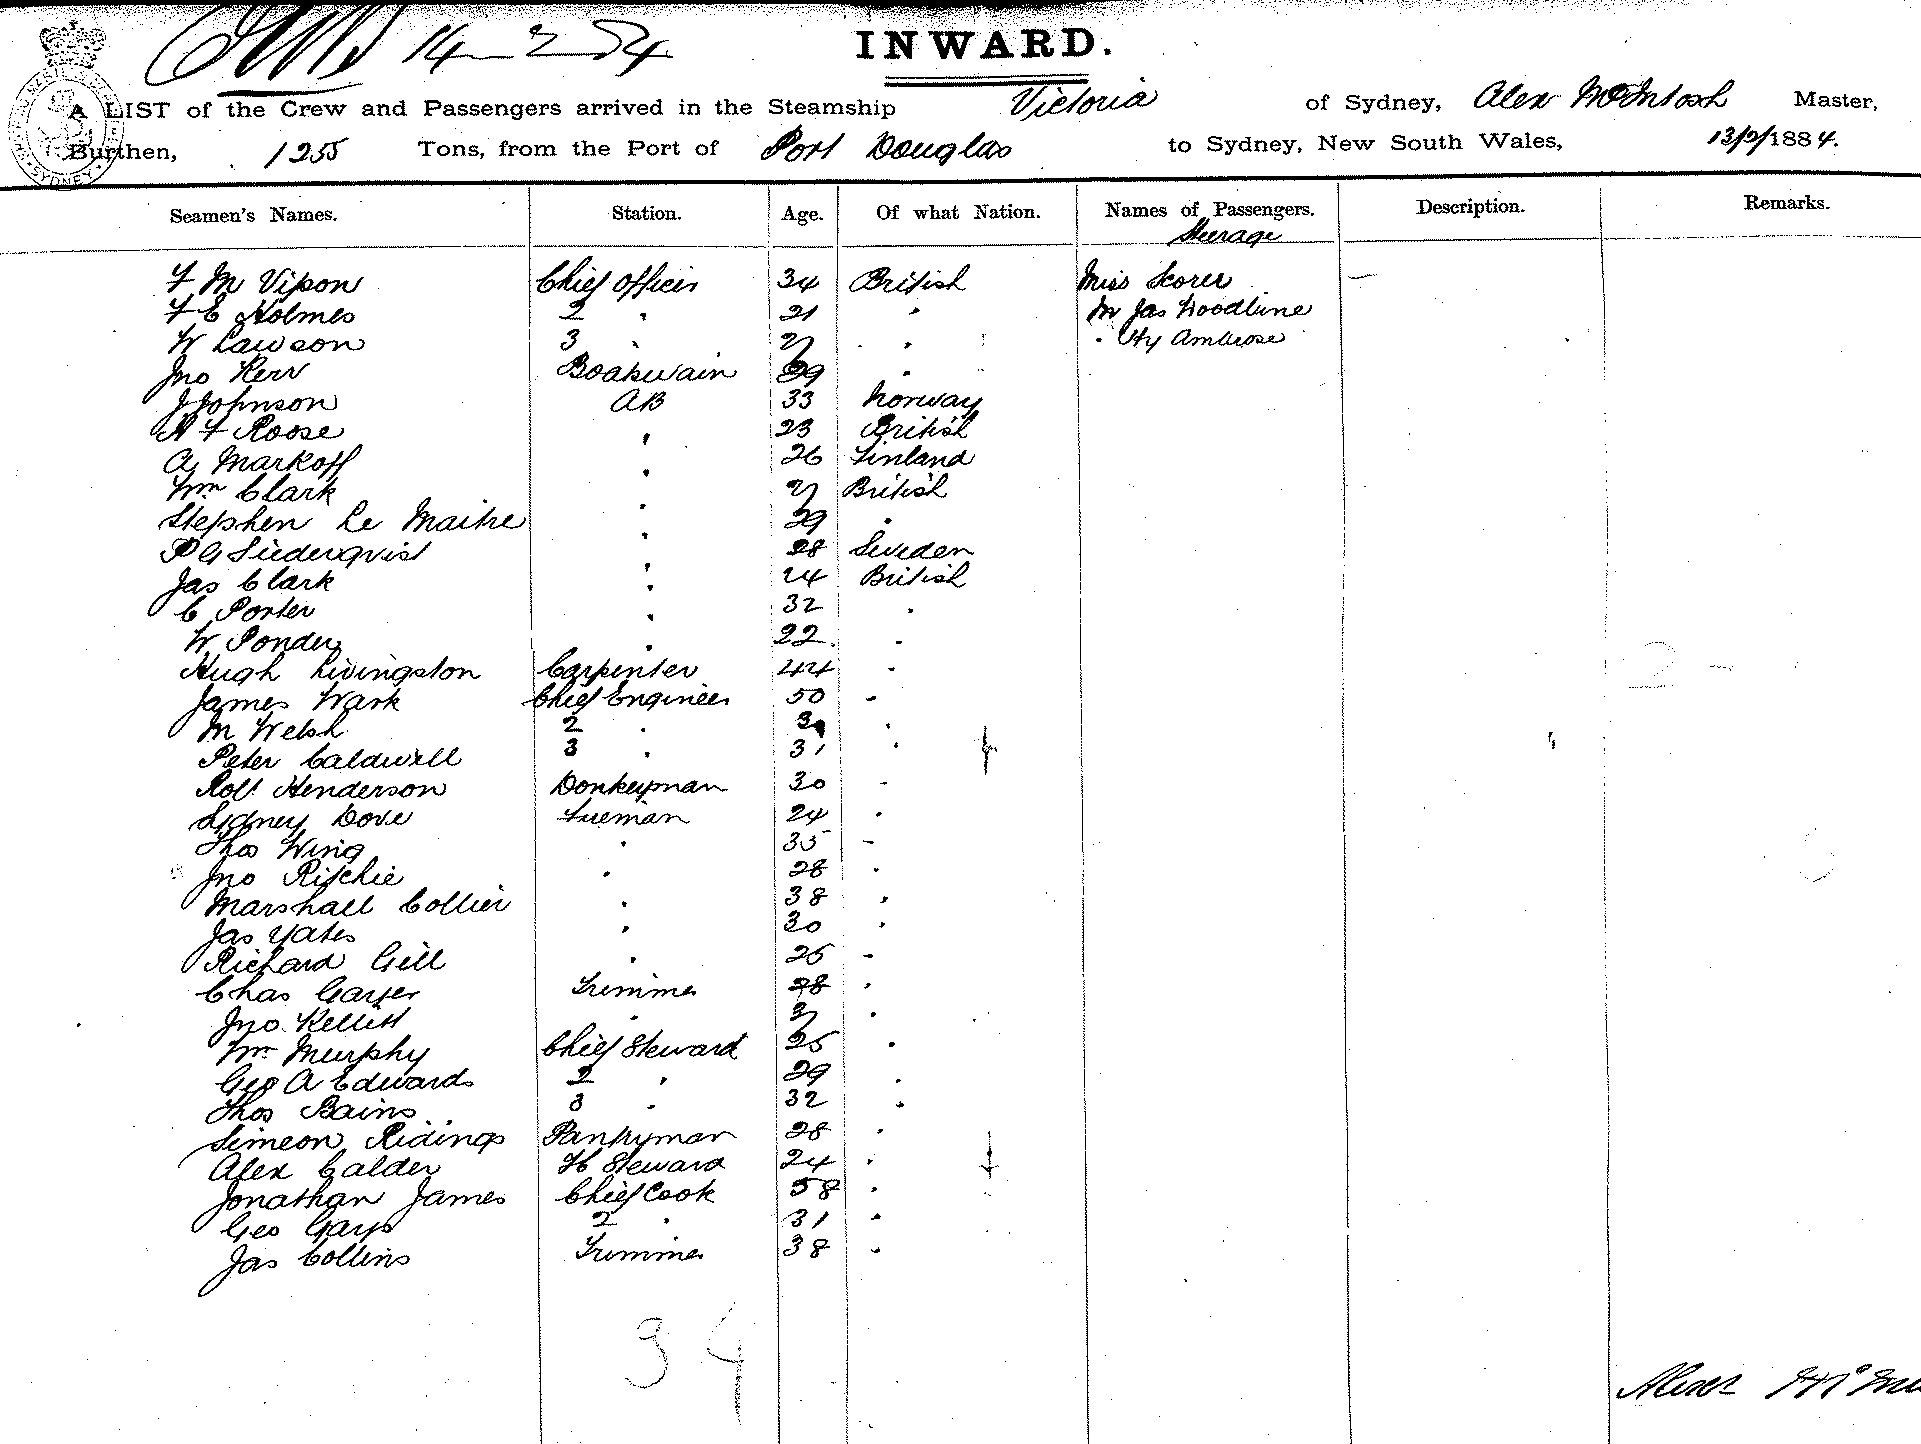 14-2-84
INWARD.
A LIST of the Crew and Passengers arrived in the Steamship Victoria of Sydney, Alex McIntosh Master,
Burthen, 1255 Tons, from the Port of Port Douglas to Sydney, New South Wales, 13/2/1884.
Seamen's Names. Station. Age. Of what Nation. Names of Passengers. Description. Remarks.
Steerage
F M Vipon Chief Officer 34 British Miss Scorer —
F E Holmes 2 " 21 " Mr Jas Woodbine
W Lawson 3 " 27 " " Hy Ambrose
Jno Kerr Boatswain 39 "
J Johnson AB 33 Norway
H F Roose " 23 British
A Markoff " 26 Finland
Wm Clark " 27 British
Stephen Le Maitre " 29 "
P G Suderqvist " 28 Sweden
Jas Clark " 24 British
C Porter " 32 "
W Ponder " 22 "
Hugh Livingston Carpenter 44 "
James Wark Chief Engineer 50 "
M Welsh 2 " "
Peter Caldwell 3 " 31 "
Robt Henderson Donkeyman 30 "
Sydney Dove Fireman 24 "
Thos Wing " 35 "
Jno Ritchie " 28 "
Marshall Collier " 38 "
Jas Yates " 30 "
Richard Gill " 26 "
Chas Gayer Trimmer 28 "
Jno Kellitt " "
Wm Murphy Chief Steward 25 "
Geo A Edwards 2 " 29 "
Thos Bains 3 " 32 "
Simeon Ridings Pantryman 28 "
Alex Calder Steward 24 "
Jonathan James Chief Cook 58 "
Geo Gays 2 " 31 "
Jas Collins Trimmer 38 "
34